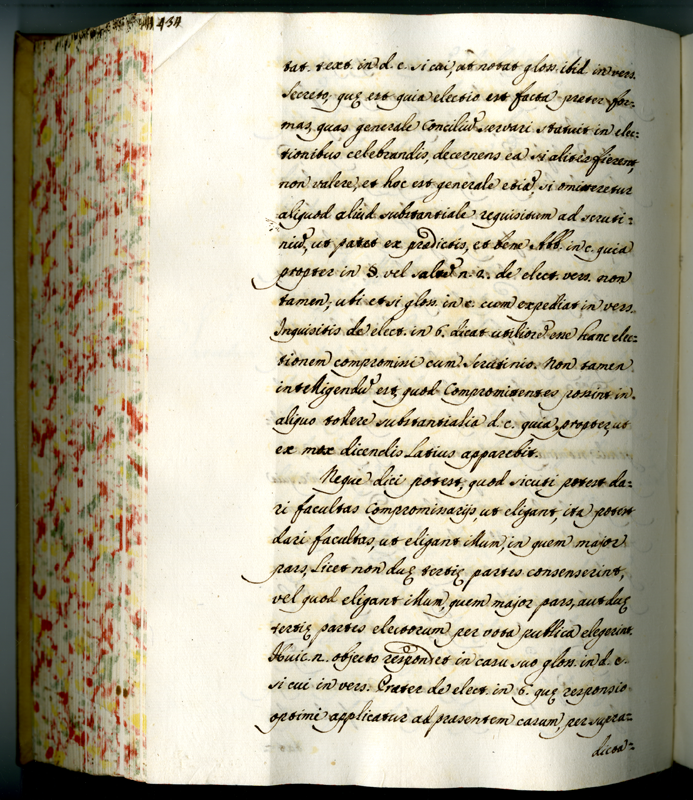 434
tat. text. in d. c. si cui, ut notat glos. ibid. in vers.
Secreto, quę est quia electio est facta preter for=
mas, quas generale Conciliũ servari statuit in elec=
tionibus celebrandis, decernens ea si aliter fierent,
non valere, et hoc est generale etiã, si omitteretur
aliquod aliud substantiale requisitum ad scruti=
niũ, ut patet ex predictis, et bene Abb. in c. quia
propter in §. vel saltẽ n. 2. de elect. vers. non
tamen, uti etsi glos. in c. cum expediat in vers.
Inquisitis de elect. in 6. dicat utiliorẽ esse hanc elec=
tionem compromissi cum Scrutinio. Non tamen
intelligendũ est, quod Compromittentes possint in
aliquo tollere substantialia d. c. quia propter, ut
ex mox dicendis Latius apparebit.
Neque dici potest, quod sicuti potest da=
ri facultas Compromissarijs, ut eligant, ita potest
dari facultas, ut eligant illum, in quem major
pars, Licet non duę tertię partes consenserint,
vel quod eligant illum, quem major pars, aut duę
tertię partes electorum per vota publica elegerint.
Huic n. objecto respondet in casu suo glos. in d. c.
si cui in vers. Prater de elect. in 6. quę responsio
optimè applicatur ad prasentem casum, per supra=
dicta=